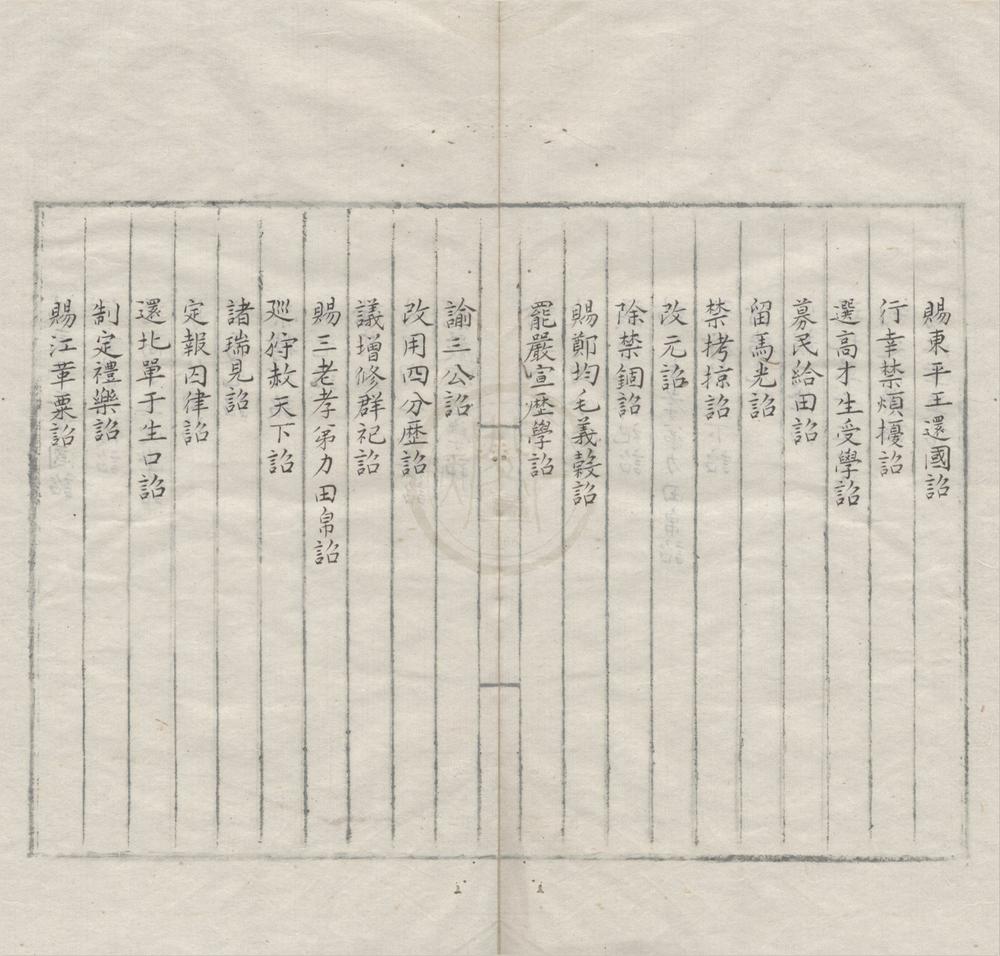 賜東平王還國詔
行幸禁煩擾詔
選高才生受學詔
募民給田詔
留馬光詔
禁拷掠詔
改元詔
除禁錮詔
賜鄭均毛義穀詔
罷嚴宣歷學詔
諭三公詔
改用四分歷詔
議增修群祀詔
賜三老孝弟力田帛詔
廵狩赦天下詔
諸瑞見詔
定報囚律詔
還北單于生口詔
制定禮樂詔
賜江革粟詔